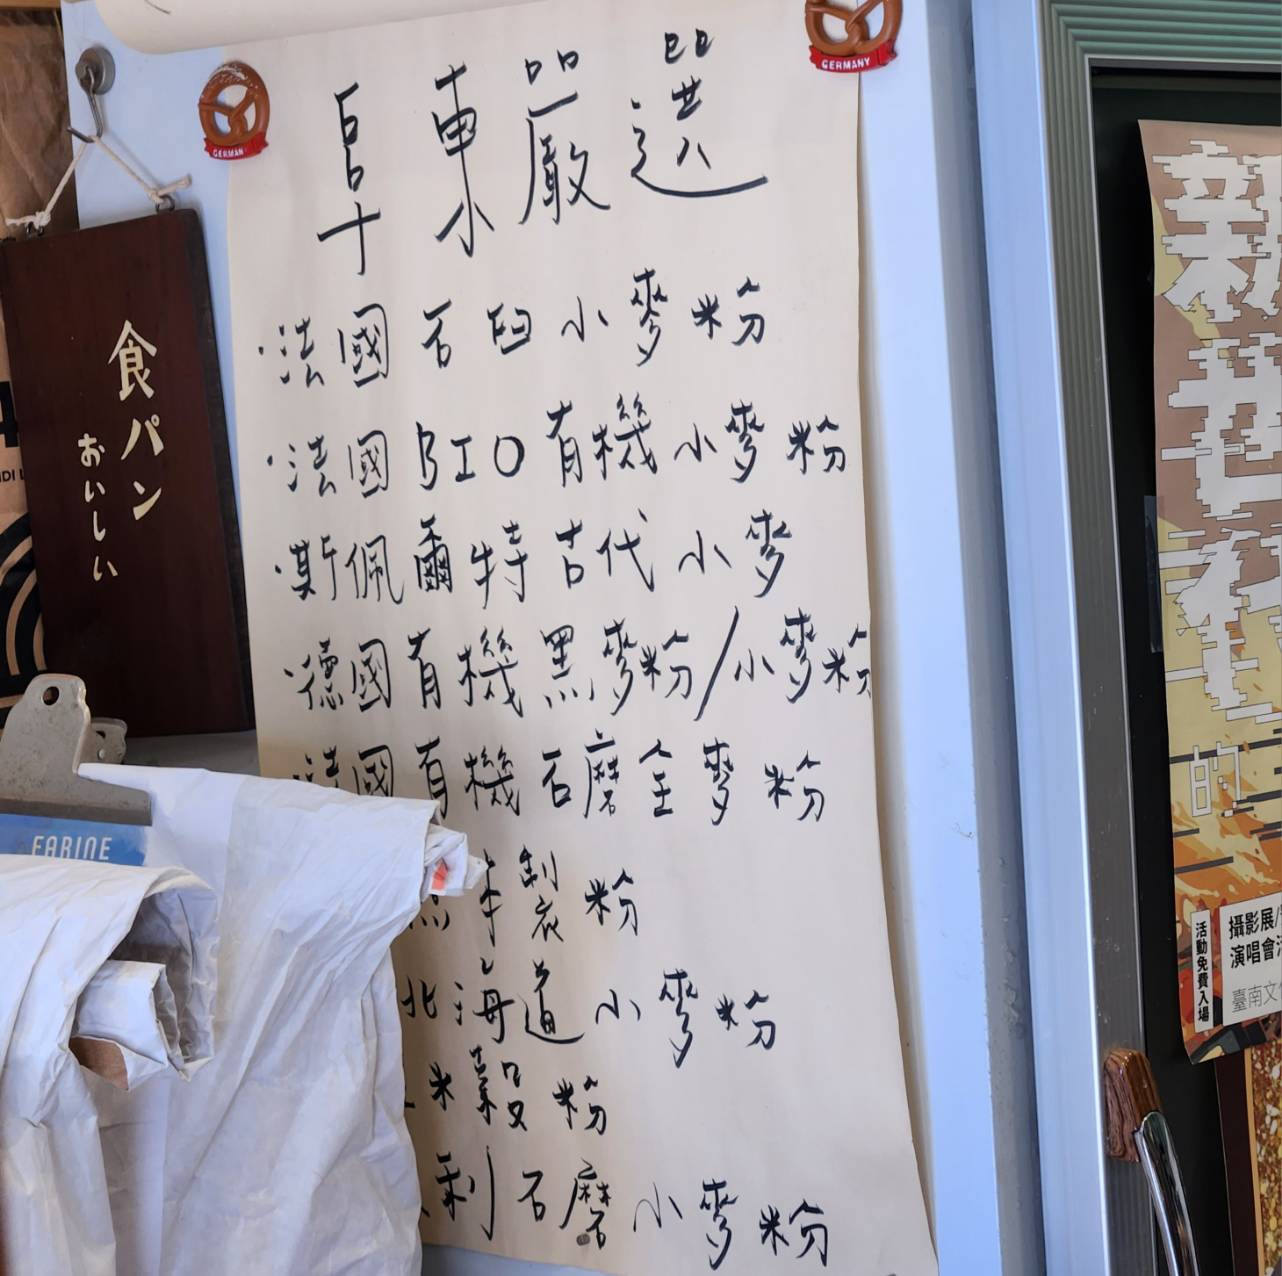 阜東嚴選
·法國石臼小麥粉
·法國BIO有機小麥粉
·斯佩爾特古代小麥
·德國有機黑麥粉/小麥粉
法國有機石磨全麥粉
製粉
北海道小麥粉
米穀粉
利石磨小麥粉
GERMAN
GERMANY
食パン
おいしい
FARINE
新世
的
活動免費入場
攝影展/
演唱會
臺南文